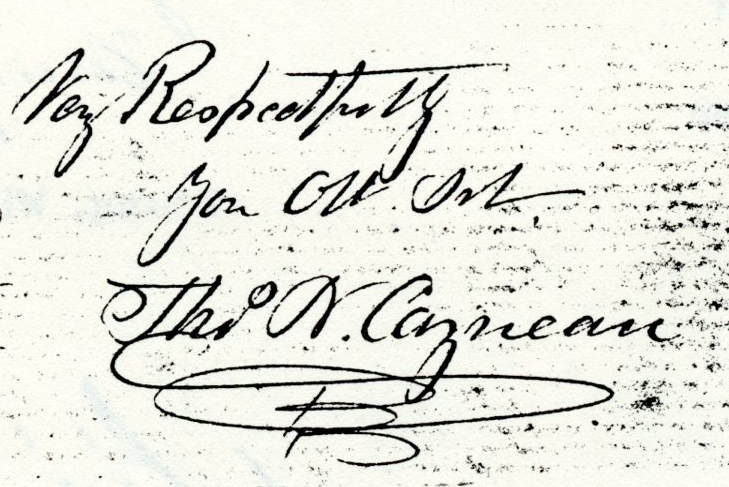 Very Respectfully
Your Obt. Svt.
Thos N. Cazneau